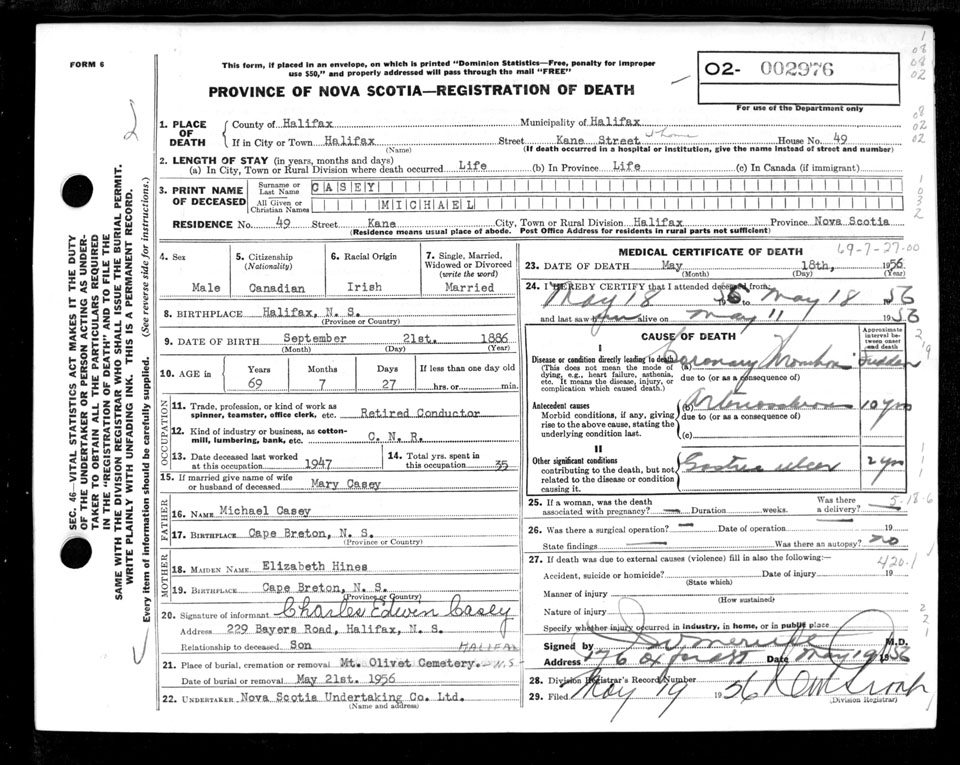 FORM 6
This form, if placed in an envelope, on which is printed "Dominion Statistics—Free, penalty for improper
use $50," and properly addressed will pass through the mail "FREE"
O2- 002976
PROVINCE OF NOVA SCOTIA—REGISTRATION OF DEATH
For use of the Department only
1. PLACE OF DEATH
County of Halifax Municipality of Halifax
If in City or Town Halifax Street Kane Street House No. 49
(Name) (If death occurred in a hospital or institution, give the name instead of street and number)
2. LENGTH OF STAY (in years, months and days)
(a) In City, Town or Rural Division where death occurred Life (b) In Province Life (c) In Canada (if immigrant)
3. PRINT NAME OF DECEASED
Surname or Last Name CASEY
All Given or Christian Names MICHAEL
RESIDENCE No. 49 Street Kane City, Town or Rural Division Halifax Province Nova Scotia
(Residence means usual place of abode. Post Office Address for residents in rural parts not sufficient)
SEC. 46—VITAL STATISTICS ACT MAKES IT THE DUTY
OF THE UNDERTAKER OR PERSON ACTING AS UNDER-
TAKER TO OBTAIN ALL THE PARTICULARS REQUIRED
IN THE "REGISTRATION OF DEATH" AND TO FILE THE
SAME WITH THE DIVISION REGISTRAR WHO SHALL ISSUE THE BURIAL PERMIT.
WRITE PLAINLY WITH UNFADING INK. THIS IS A PERMANENT RECORD.
Every item of information should be carefully supplied. (See reverse side for instructions.)
4. Sex
Male
5. Citizenship
(Nationality)
Canadian
6. Racial Origin
Irish
7. Single, Married,
Widowed or Divorced
(write the word)
Married
8. BIRTHPLACE Halifax, N. S.
(Province or Country)
9. DATE OF BIRTH September 21st. 1886
(Month) (Day) (Year)
10. AGE in
Years Months Days If less than one day old
69 7 27 hrs. or min.
OCCUPATION
11. Trade, profession, or kind of work as
spinner, teamster, office clerk, etc. Retired Conductor
12. Kind of industry or business, as cotton-
mill, lumbering, bank, etc. C. N. R.
13. Date deceased last worked
at this occupation 1947
14. Total yrs. spent in
this occupation 35
15. If married give name of wife
or husband of deceased Mary Casey
FATHER
16. NAME Michael Casey
17. BIRTHPLACE Cape Breton, N. S.
(Province or Country)
MOTHER
18. MAIDEN NAME Elizabeth Hines
19. BIRTHPLACE Cape Breton, N. S.
(Province or Country)
20. Signature of informant Charles Edwin Casey
Address 229 Bayers Road, Halifax, N. S.
Relationship to deceased Son
HALIFAX
21. Place of burial, cremation or removal Mt. Olivet Cemetery. N.S.
Date of burial or removal May 21st. 1956
22. UNDERTAKER Nova Scotia Undertaking Co. Ltd.
(Name and address)
MEDICAL CERTIFICATE OF DEATH 69-7-27-00
23. DATE OF DEATH May 18th, 1956
(Month) (Day) (Year)
24. I HEREBY CERTIFY that I attended deceased from:
May 18 56 to May 18 1956
and last saw him alive on May 11 1956
CAUSE OF DEATH
Approximate
interval between
onset and death
I
Disease or condition directly leading to death
(This does not mean the mode of
dying, e.g., heart failure, asthenia,
etc. It means the disease, injury, or
complication which caused death.)
(a) Coronary Sudden
due to (or as a consequence of)
Antecedent causes
Morbid conditions, if any, giving
rise to the above cause, stating the
underlying condition last.
(b) 10 yrs
due to (or as a consequence of)
(c)
II
Other significant conditions
contributing to the death, but not
related to the disease or condition
causing it.
ulcer 2 yrs
25. If a woman, was the death
associated with pregnancy? — Duration weeks. Was there
a delivery? 5-18-6
26. Was there a surgical operation? — Date of operation 19
State findings — Was there an autopsy? no
27. If death was due to external causes (violence) fill in also the following: 420.1
Accident, suicide or homicide? Date of injury 19
(State which)
Manner of injury
(How sustained)
Nature of injury
Specify whether injury occurred in industry, in home, or in public place
Signed by M.D.
Address 176 Date May 19 1956
28. Division Registrar's Record Number
29. Filed May 19 1956
(Division Registrar)